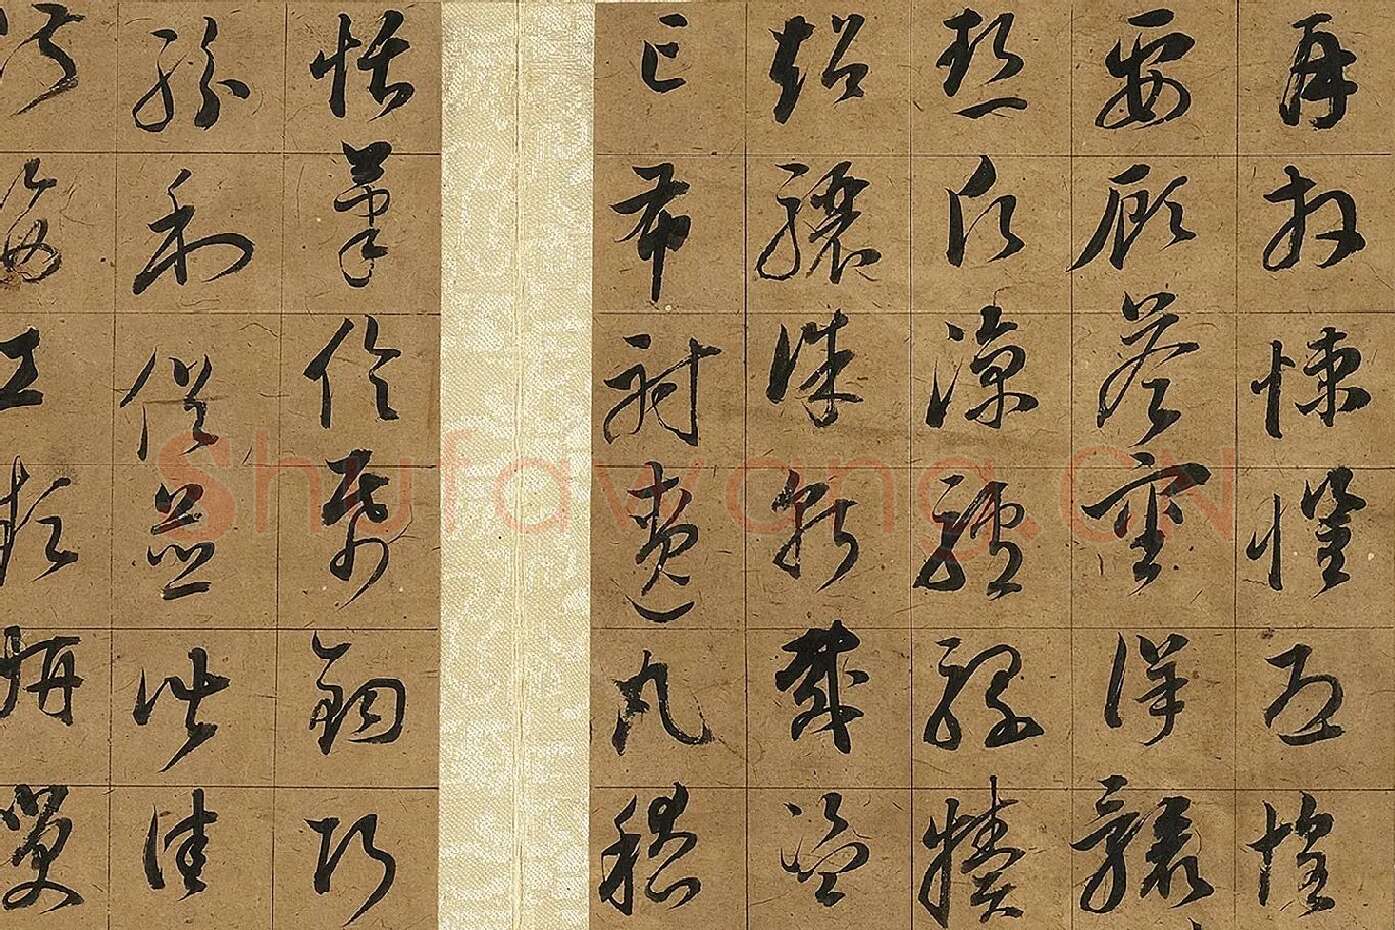 再拜悚懼恐惶
要顧答審詳骸
熱願涼驢騾犢
超驤誅斬賊盜
亡布射遼丸嵇
恬筆倫紙鈞巧
紛利俗並皆佳
淑姿工顰妍笑
Shufawang.CN